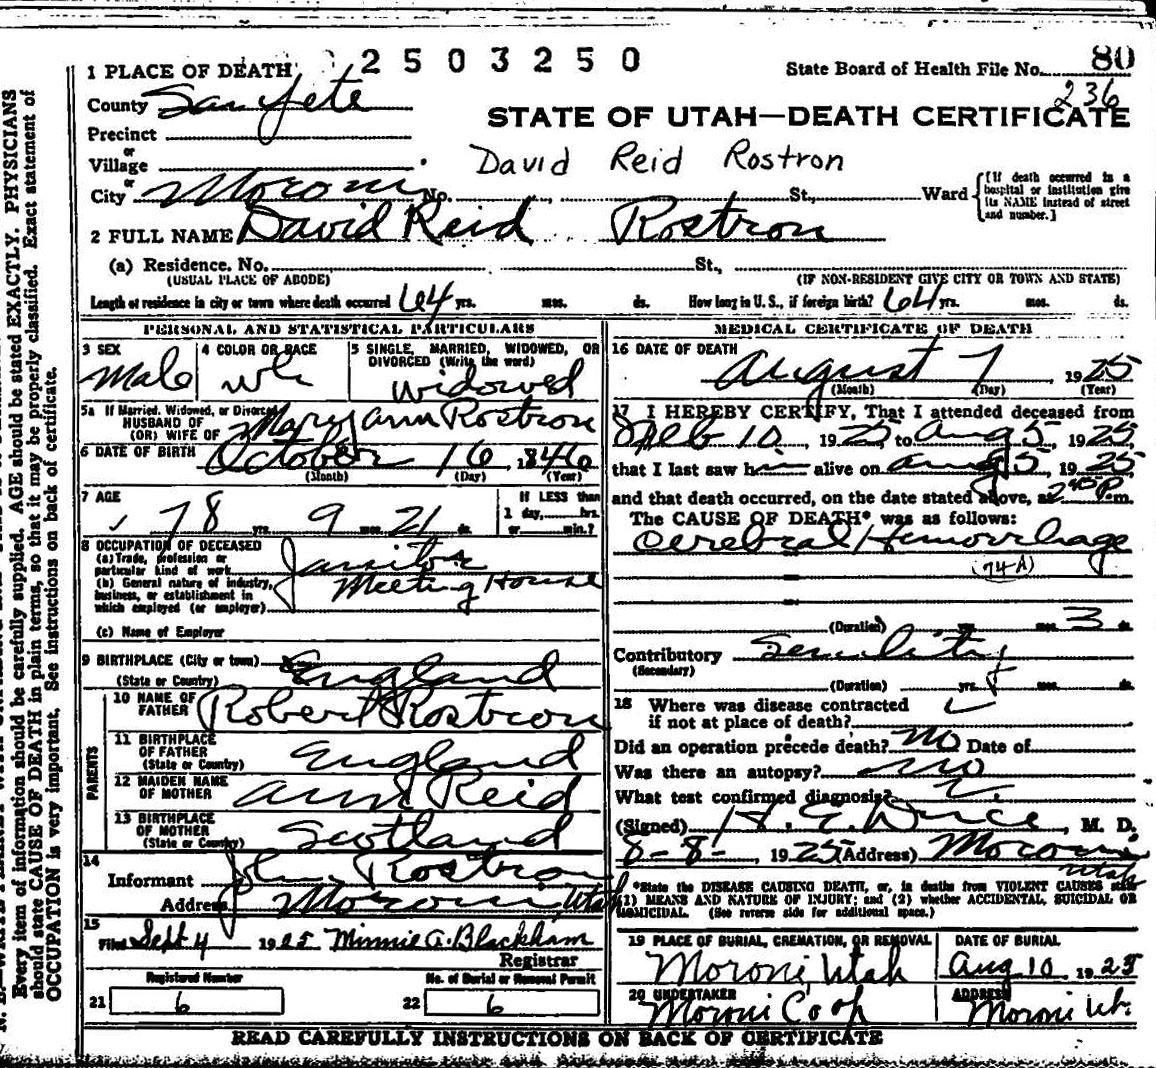 2503250
80
State Board of Health File No.
236
1 PLACE OF DEATH
County Sanpete
STATE OF UTAH—DEATH CERTIFICATE
Precinct
or
Village
David Reid Rostron
or
City Moroni No. St., Ward
[If death occurred in a hospital or institution give its NAME instead of street and number.]
2 FULL NAME David Reid Rostron
(a) Residence. No. St.,
(USUAL PLACE OF ABODE) (IF NON-RESIDENT GIVE CITY OR TOWN AND STATE)
Length of residence in city or town where death occurred 64 yrs. mos. ds. How long in U.S., if foreign birth? 64 yrs. mos. ds.
PERSONAL AND STATISTICAL PARTICULARS
3 SEX
Male
4 COLOR OR RACE
wh
5 SINGLE, MARRIED, WIDOWED, OR
DIVORCED (Write the word)
widowed
5a If Married, Widowed, or Divorced
HUSBAND OF
(OR) WIFE OF Mary ann Rostron
6 DATE OF BIRTH October 16 1846
(Month) (Day) (Year)
7 AGE
78 yrs. 9 mos. 21 ds.
If LESS than
1 day, hrs.
or min.?
8 OCCUPATION OF DECEASED
(a) Trade, profession or
particular kind of work Janitor
(b) General nature of industry,
business, or establishment in
which employed (or employer) Meeting House
(c) Name of Employer
9 BIRTHPLACE (City or town)
(State or Country) England
PARENTS
10 NAME OF
FATHER Robert Rostron
11 BIRTHPLACE
OF FATHER
(State or Country) England
12 MAIDEN NAME
OF MOTHER Ann Reid
13 BIRTHPLACE
OF MOTHER
(State or Country) Scotland
14
Informant John Rostron
Address Moroni, Utah
15
Filed Sept 4 1925 Minnie A. Blackham
Registrar
Registered Number No. of Burial or Removal Permit
21 6 22 6
MEDICAL CERTIFICATE OF DEATH
16 DATE OF DEATH
August 7 1925
(Month) (Day) (Year)
17 I HEREBY CERTIFY, That I attended deceased from
10, 1925 to Aug 5, 1925,
that I last saw him alive on Aug 5, 1925,
and that death occurred, on the date stated above, at P.m.
The CAUSE OF DEATH* was as follows:
Cerebral Hemorrhage
(74A)
(Duration) yrs. mos. 3 ds.
Contributory Senility
(Secondary)
(Duration) yrs. mos. ds.
18 Where was disease contracted
if not at place of death?
Did an operation precede death? No Date of
Was there an autopsy? No
What test confirmed diagnosis?
(Signed) H. E. , M. D.
8-8-, 1925 (Address) Moroni
Utah
*State the DISEASE CAUSING DEATH, or, in deaths from VIOLENT CAUSES state
(1) MEANS AND NATURE OF INJURY; and (2) whether ACCIDENTAL, SUICIDAL OR
HOMICIDAL. (See reverse side for additional space.)
19 PLACE OF BURIAL, CREMATION, OR REMOVAL
Moroni, Utah
DATE OF BURIAL
Aug 10 1925
20 UNDERTAKER
Moroni Co op
ADDRESS
Moroni Ut.
READ CAREFULLY INSTRUCTIONS ON BACK OF CERTIFICATE
Every item of information should be carefully supplied. AGE should be stated EXACTLY. PHYSICIANS
should state CAUSE OF DEATH in plain terms, so that it may be properly classified. Exact statement of
OCCUPATION is very important. See instructions on back of certificate.